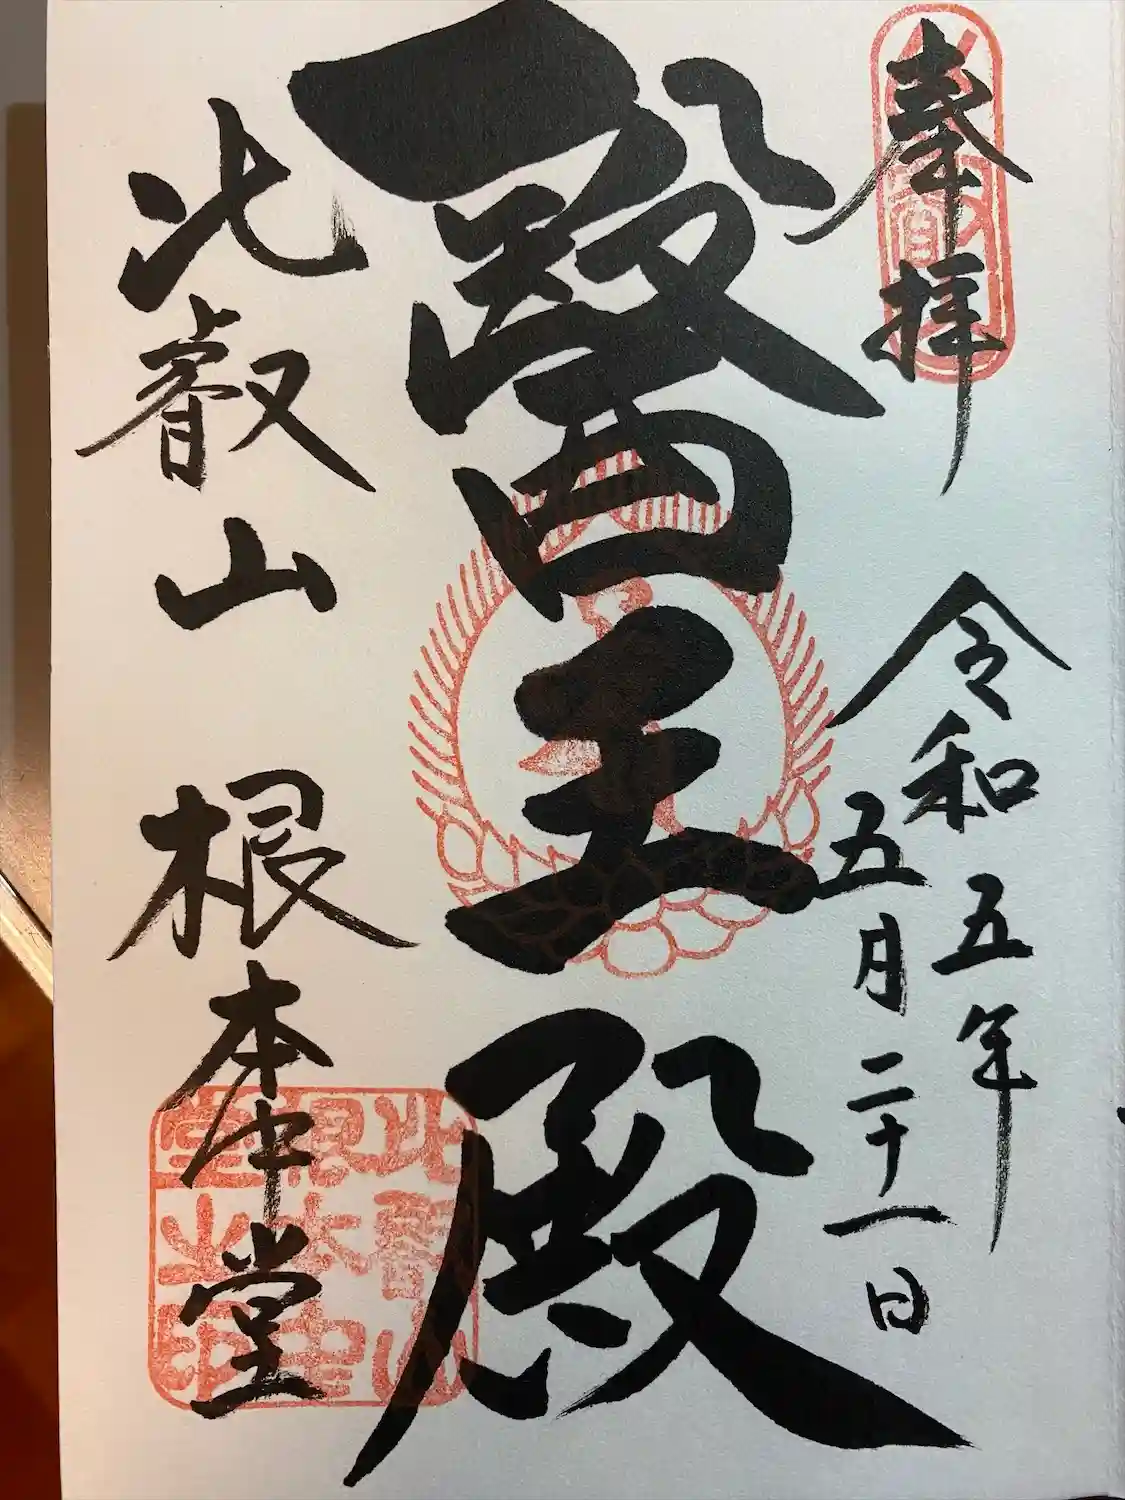 奉拝
令和五年
五月二十一日
醫王殿
比叡山 根本中堂
比叡山
根本中
堂之印